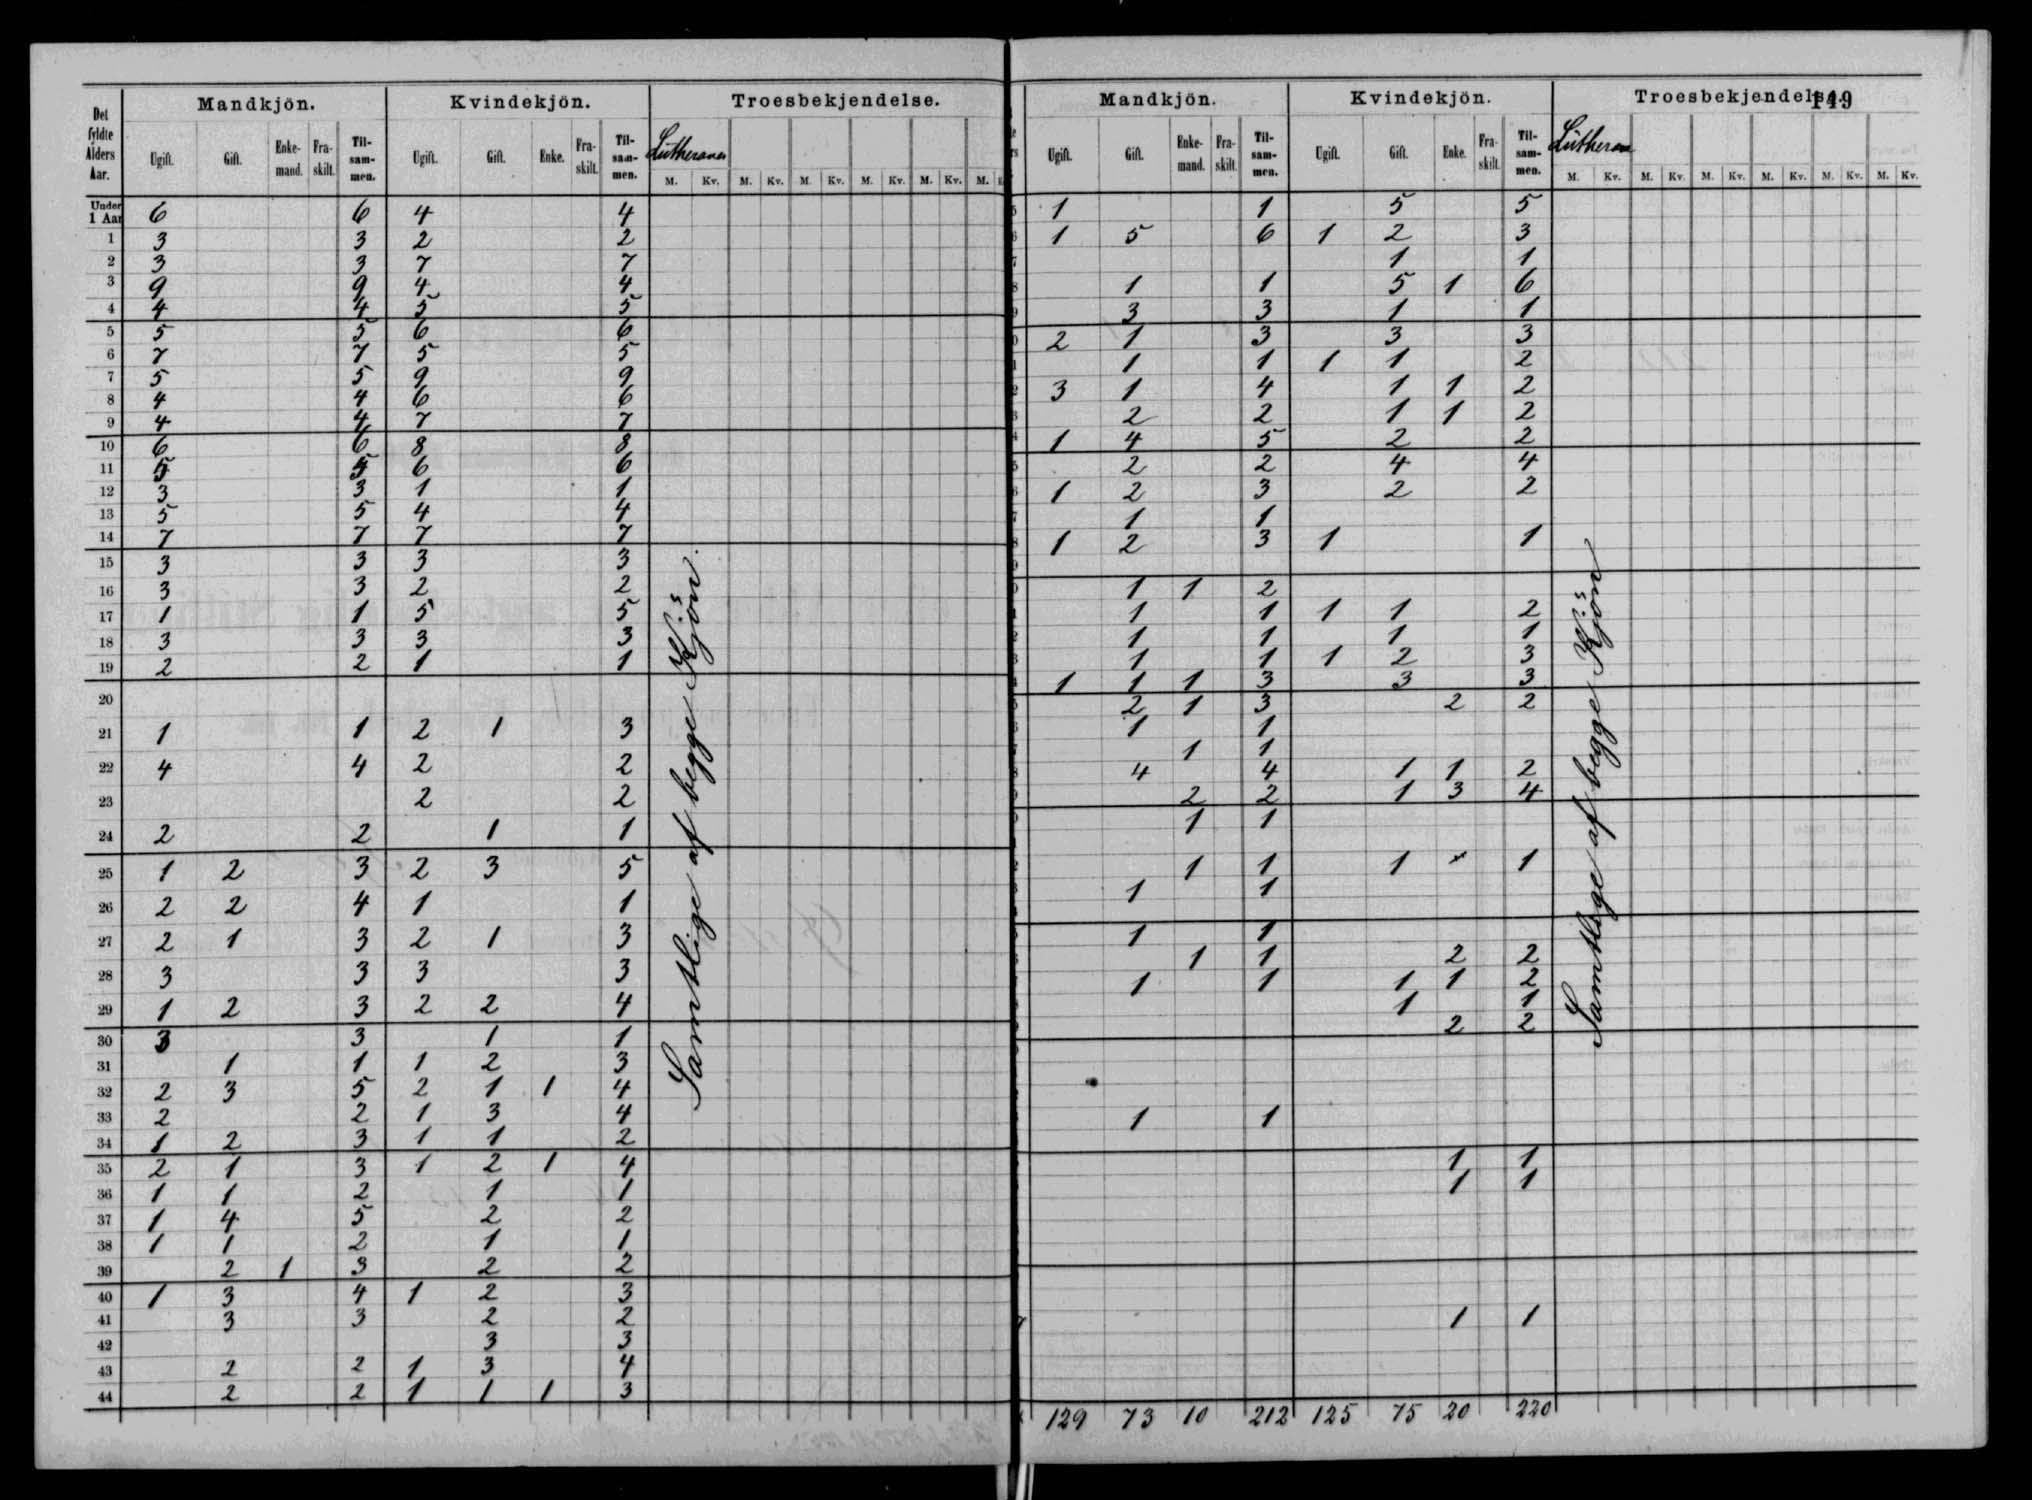 Det fyldte Alders Aar. | Mandkjön. | Kvindekjön. | Troesbekjendelse.
Ugift. | Gift. | Enke-mand. | Fra-skilt. | Til-sam-men. | Ugift. | Gift. | Enke. | Fra-skilt. | Til-sam-men. | Lutheraner
M. Kv. M. Kv. M. Kv. M. Kv. M. Kv. M.
Under 1 Aar 6 6 4 4
1 3 3 2 2
2 3 3 7 7
3 9 9 4 4
4 4 4 5 5
5 5 5 6 6
6 7 7 5 5
7 5 5 9 9
8 4 4 6 6
9 4 4 7 7
10 6 6 8 8
11 5 5 6 6
12 3 3 1 1
13 5 5 4 4
14 7 7 7 7
15 3 3 3 3
16 3 3 2 2
17 1 1 5 5
18 3 3 3 3
19 2 2 1 1
20
21 1 1 2 1 3
22 4 4 2 2
23 2 2
24 2 2 1 1
25 1 2 3 2 3 5
26 2 2 4 1 1
27 2 1 3 2 1 3
28 3 3 3 3
29 1 2 3 2 2 4
30 3 3 1 1
31 1 1 1 2 3
32 2 3 5 2 1 1 4
33 2 2 1 3 4
34 1 2 3 1 1 2
35 2 1 3 1 2 1 4
36 1 1 2 1 1
37 1 4 5 2 2
38 1 1 2 1 1
39 2 1 3 2 2
40 1 3 4 1 2 3
41 3 3 2 2
42 3 3
43 2 2 1 3 4
44 2 2 1 1 1 3
Samtlige af begge Kjöns
149
Mandkjön. | Kvindekjön. | Troesbekjendelse.
Ugift. | Gift. | Enke-mand. | Fra-skilt. | Til-sam-men. | Ugift. | Gift. | Enke. | Fra-skilt. | Til-sam-men. | Lutheran
M. Kv. M. Kv. M. Kv. M. Kv. M. Kv. M. Kv.
1 1 5 5
1 5 6 1 2 3
1 1
1 1 5 1 6
3 3 1 1
2 1 3 3 3
1 1 1 1 2
3 1 4 1 1 2
2 2 1 1 2
1 4 5 2 2
2 2 4 4
1 2 3 2 2
1 1
1 2 3 1 1
1 1 2
1 1 1 1 2
1 1 1 1
1 1 1 2 3
1 1 1 3 3 3
2 1 3 2 2
1 1
1 1
4 4 1 1 2
2 2 1 3 4
1 1
1 1 1 1
1 1
1 1
1 1 2 2
1 1 1 1 2
1 1
2 2
1 1
1 1
1 1
1 1
129 73 10 212 125 75 20 220
Samtlige af begge Kjöns